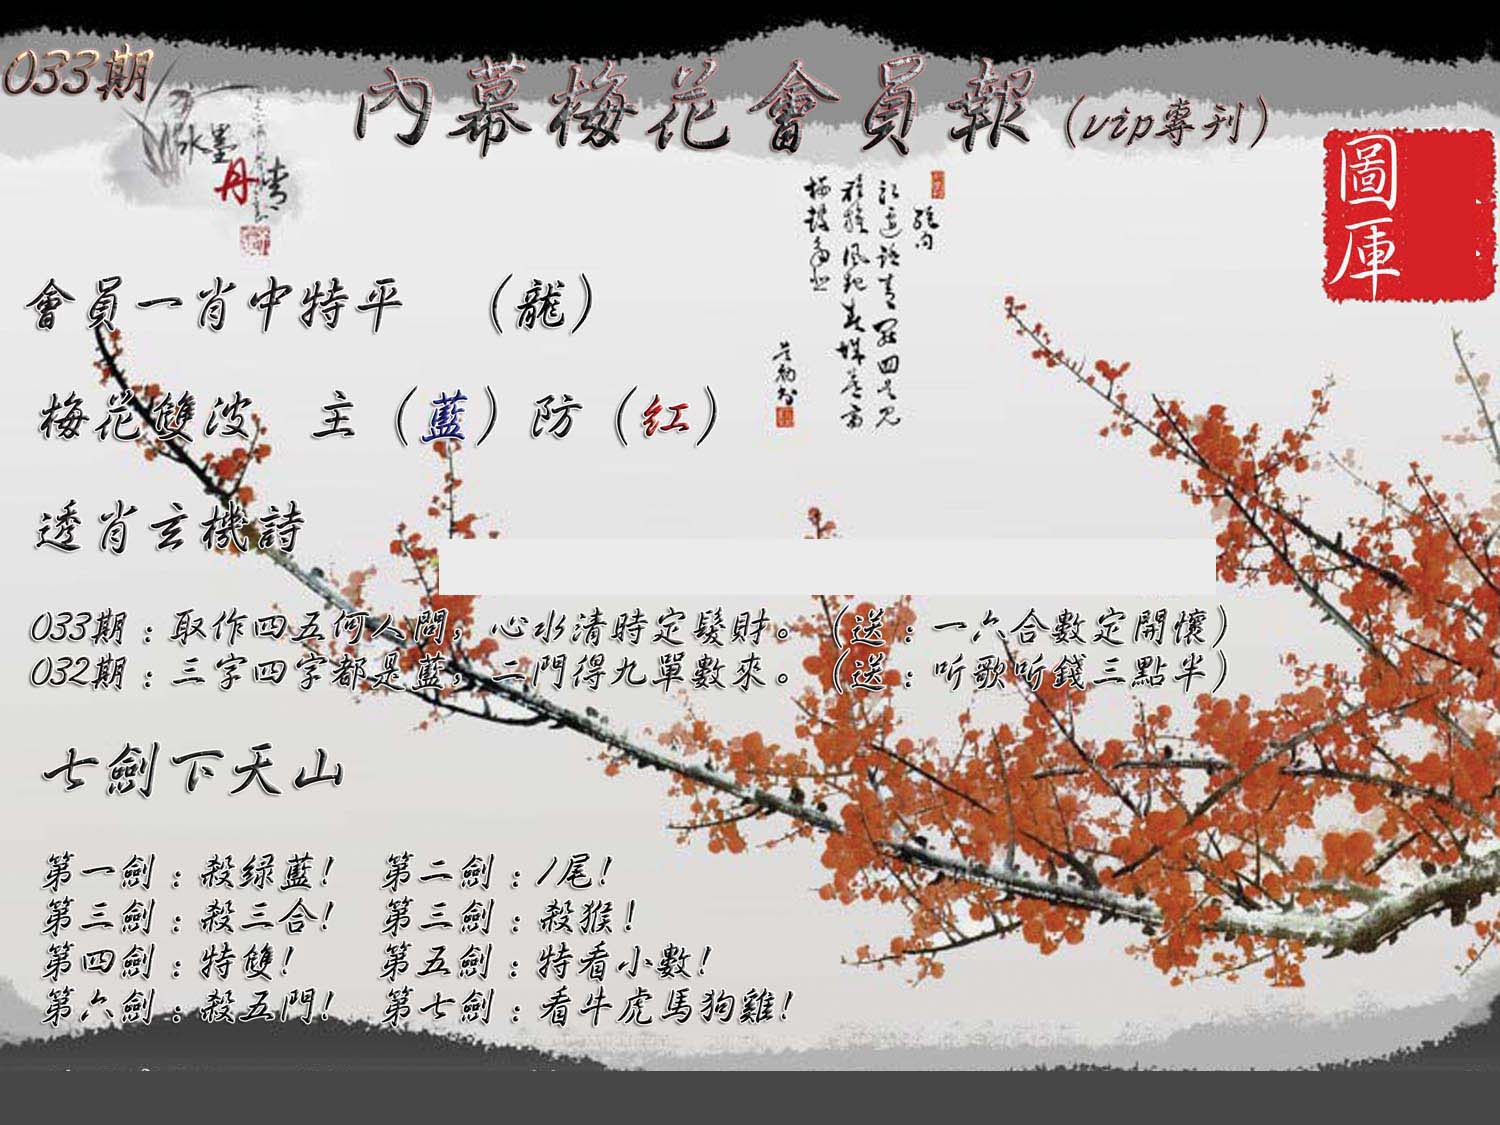 033期
內幕梅花會員報(vip專刊)
水墨
丹情
圖庫
會員一肖中特平 (龍)
梅花雙波 主(藍)防(红)
透肖玄機詩
033期:取作四五何人問,心水清時定發財。(送:一六合數定開懷)
032期:三字四字都是藍,二門得九單數來。(送:听歌听錢三點半)
七劍下天山
第一劍:殺绿藍! 第二劍:1尾!
第三劍:殺三合! 第三劍:殺猴!
第四劍:特雙! 第五劍:特看小數!
第六劍:殺五門! 第七劍:看牛虎馬狗雞!